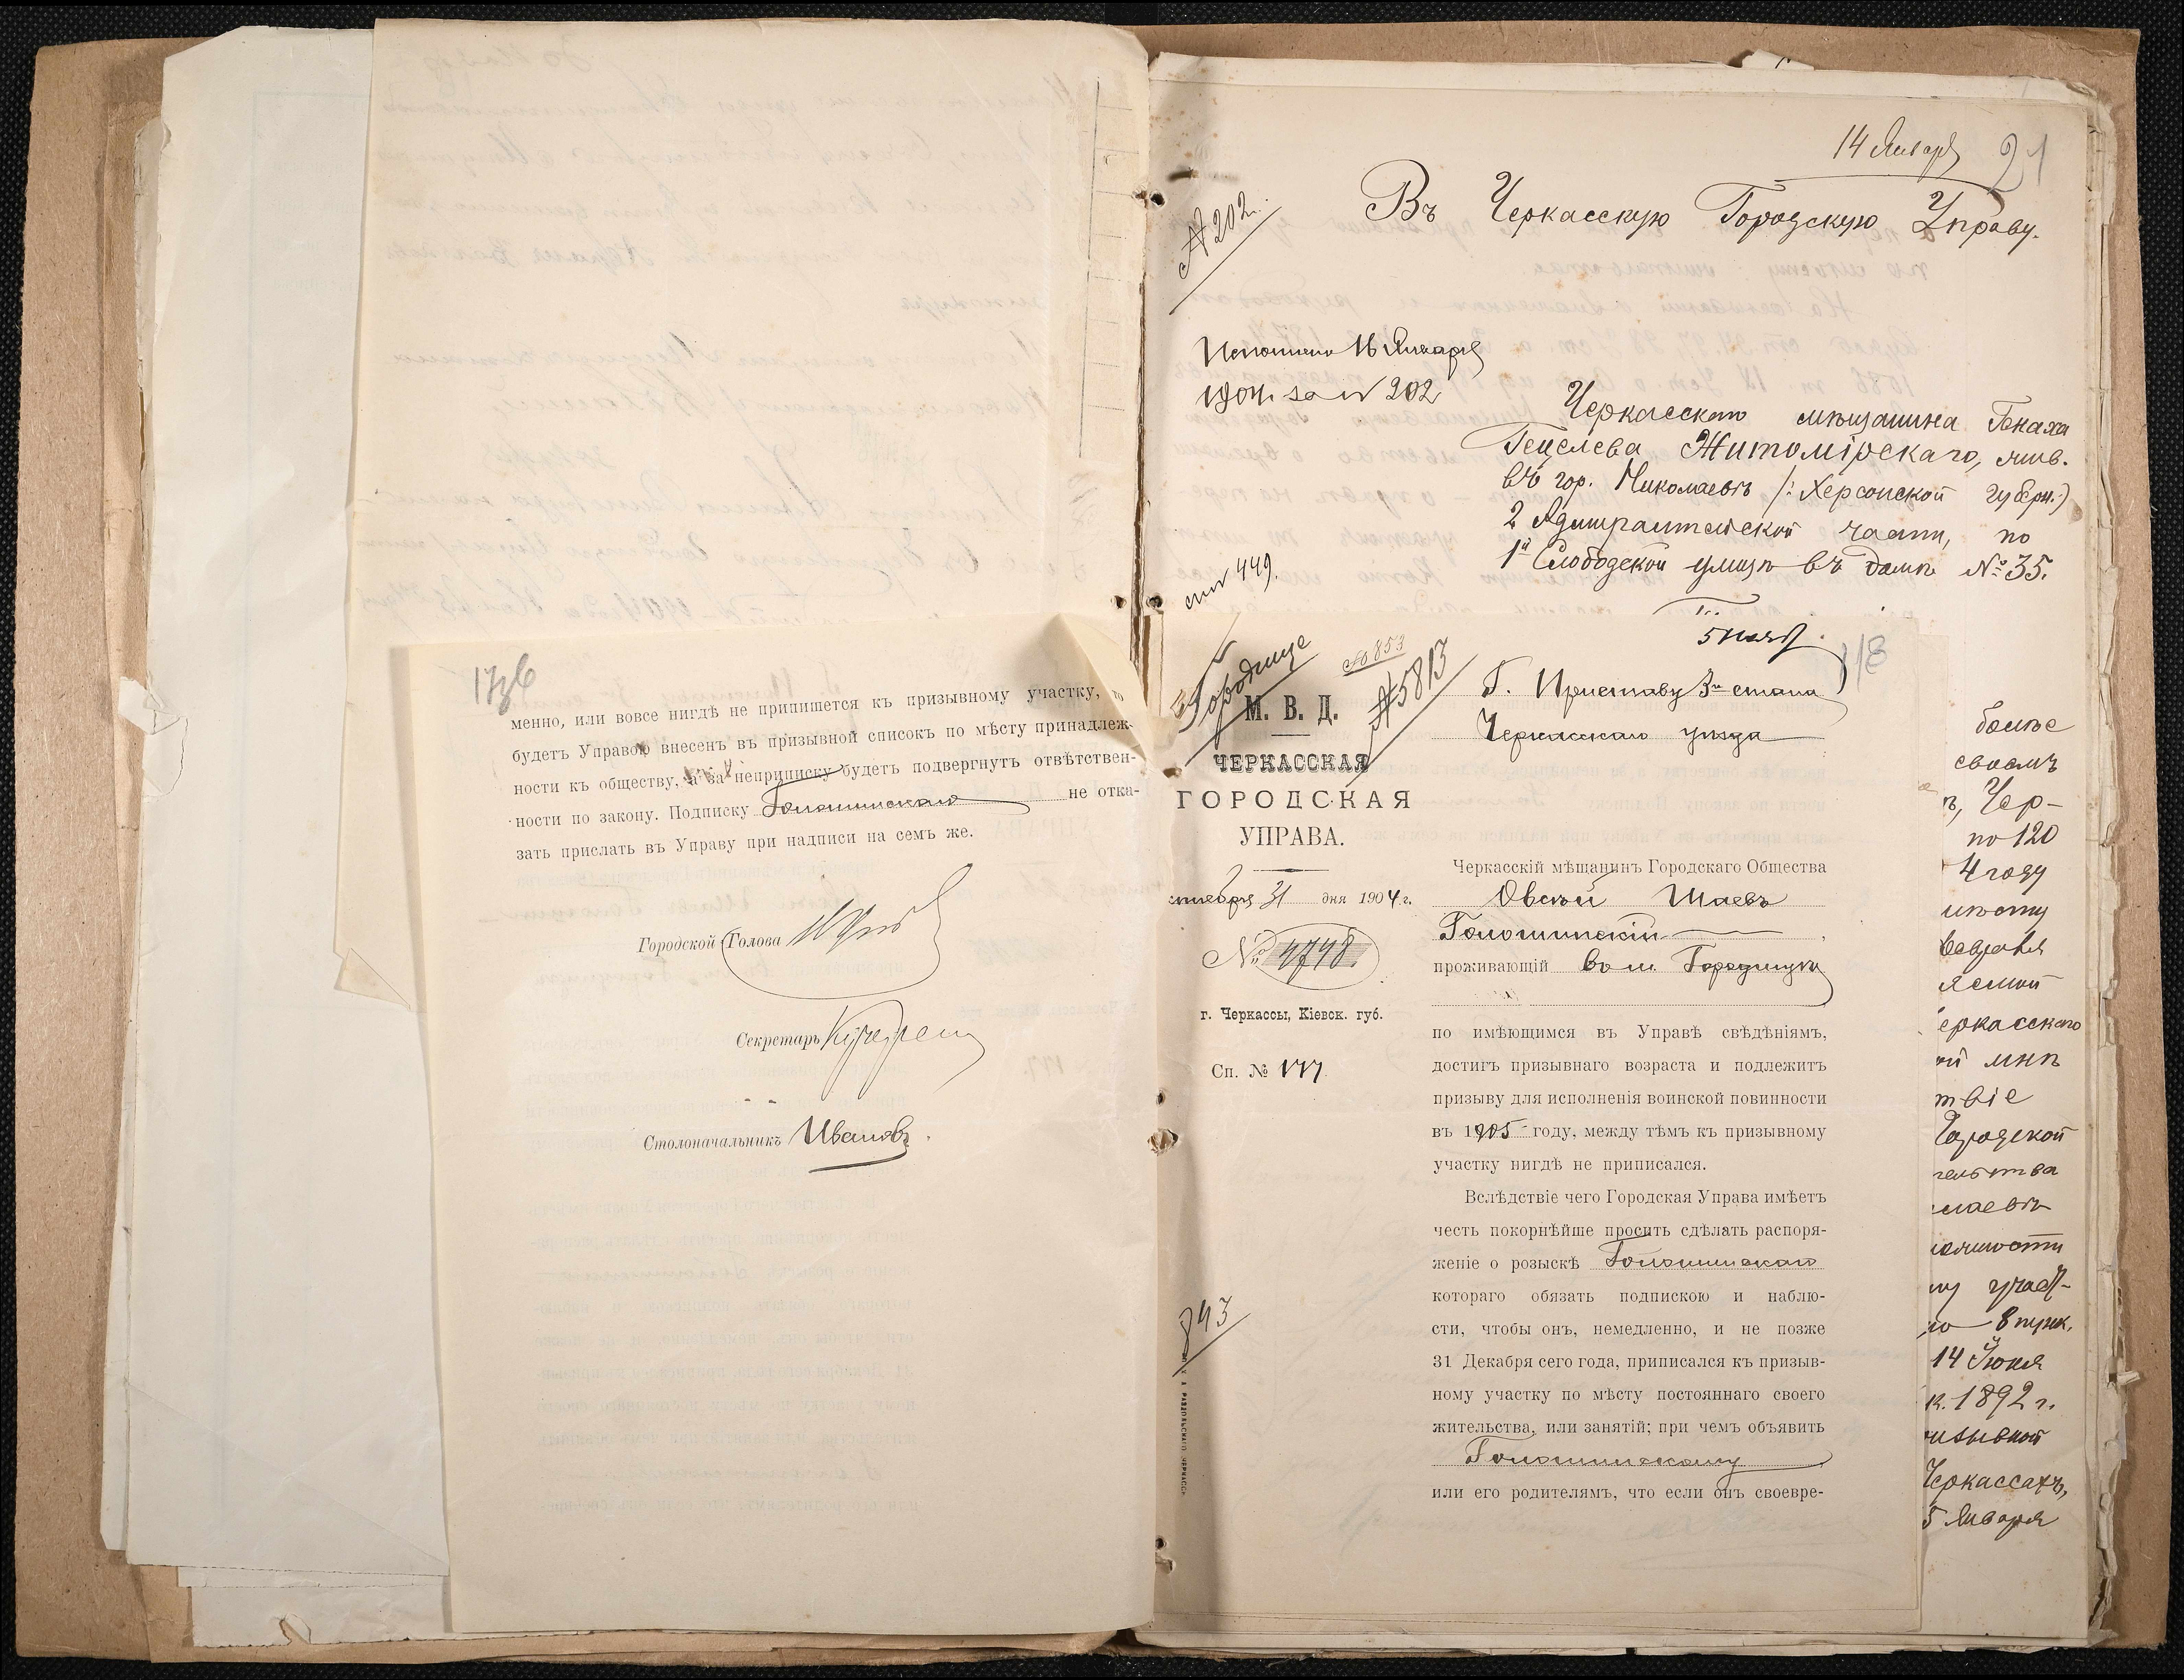 176
менно, или вовсе нигдѣ не припишется къ призывному участку, то
будетъ Управою внесенъ въ призывной списокъ по мѣсту принадлеж-
ности къ обществу, а за неприписку будетъ подвергнутъ отвѣтствен-
ности по закону. Подписку Голошинскаго не отка-
зать прислать въ Управу при надписи на семъ же.
Городской Голова
Секретарь
Столоначальникъ Ивановъ.
14 Января
21
Въ Черкасскую Городскую Управу.
№ 202.
Исполнено 16 Января
1904 г. за № 202
Черкасскаго мѣщанина Генаха
Гецелева Житомірскаго, жив.
въ гор. Николаевѣ /: Херсонской губерн.)
2 Адмиралтейской части, по
1й Слободской улицѣ въ домѣ № 35.
449.
5 Нояб.
118
Городище
№ 853
№ 5813
М. В. Д.
ЧЕРКАССКАЯ
ГОРОДСКАЯ
УПРАВА.
31 дня 1904 г.
№ 4748.
г. Черкассы, Кіевск. губ.
Сп. № 177
743
Г. Приставу 3го стана
Черкасскаго уѣзда
Черкасскій мѣщанинъ Городскаго Общества
Овсѣй Шаевъ
Голошинскій,
проживающій въ м. Городищѣ
по имѣющимся въ Управѣ свѣдѣніямъ,
достигъ призывнаго возраста и подлежитъ
призыву для исполненія воинской повинности
въ 1905 году, между тѣмъ къ призывному
участку нигдѣ не приписался.
Вслѣдствіе чего Городская Управа имѣетъ
честь покорнѣйше просить сдѣлать распоря-
женіе о розыскѣ Голошинскаго
котораго обязать подпискою и наблю-
сти, чтобы онъ, немедленно, и не позже
31 Декабря сего года, приписался къ призыв-
ному участку по мѣсту постояннаго своего
жительства, или занятій; при чемъ объявить
Голошинскому
или его родителямъ, что если онъ своевре-
болѣе
своемъ
ѣ, Чер-
по 120
4 году
еркасскаго
ій мнѣ
твіе
Городской
тельства
лаевѣ
му учас-
8 пунк.
14 Іюня
к. 1892 г.
изывной
Черкассахъ,
5 Января